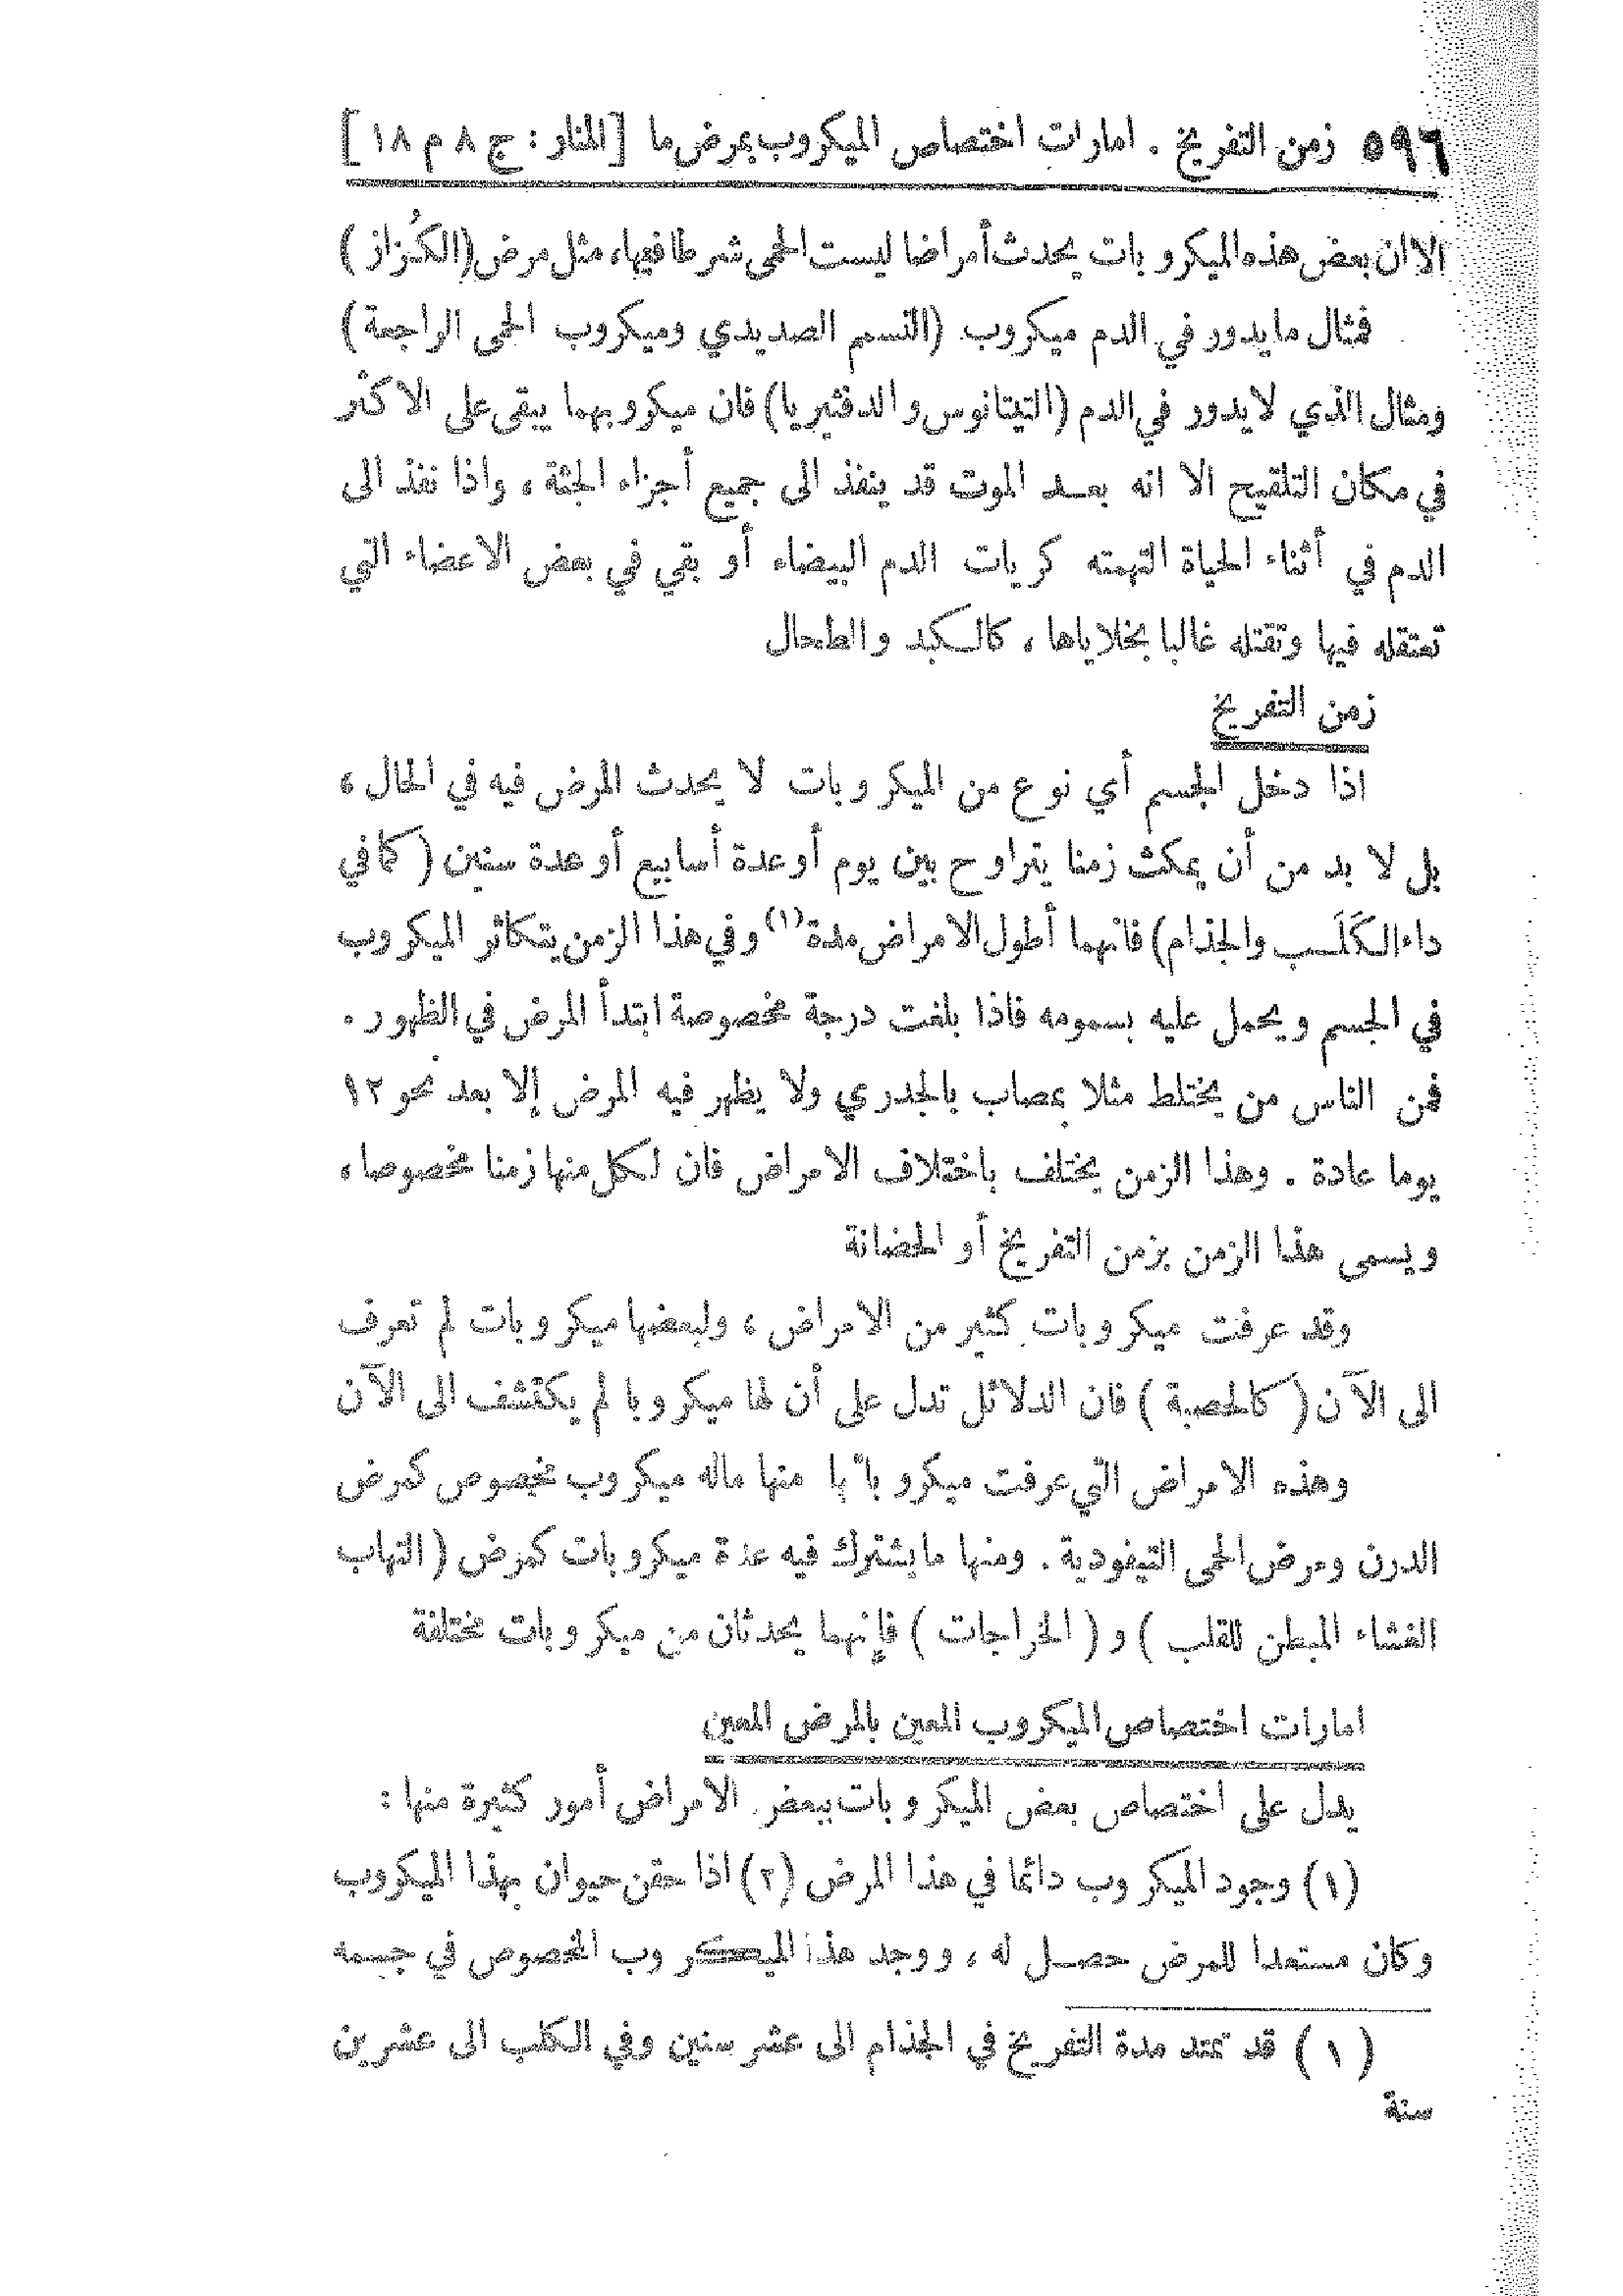 ٥٩٦ زمن التفريخ . امارات اختصاص الميكروب بمرض ما [المنار : ج ٨ م ١٨]
الا ان بعض هذه الميكروبات يحدث أمراضا ليست الحمى شرطا فيها، مثل مرض (الكُزاز)
فمثال ما يدور في الدم ميكروب (التسمم الصديدي وميكروب الحمى الراجعة)
ومثال الذي لا يدور في الدم (التيتانوس والدفثيريا) فان ميكروبهما يبقى على الاكثر
في مكان التلقيح الا انه بعد الموت قد ينفذ الى جميع أجزاء الجثة ، واذا نفذ الى
الدم في أثناء الحياة التهمته كريات الدم البيضاء أو بقي في بعض الاعضاء التي
تعتقله فيها وتقتله غالبا بخلاياها ، كالكبد والطحال
زمن التفريخ
اذا دخل الجسم أي نوع من الميكروبات لا يحدث المرض فيه في الحال ،
بل لا بد من أن يمكث زمنا يتراوح بين يوم أو عدة أسابيع أو عدة سنين ( كما في
داء الكَلَب والجذام) فانهما أطول الامراض مدة (١) وفي هذا الزمن يتكاثر الميكروب
في الجسم ويحمل عليه بسمومه فاذا بلغت درجة مخصوصة ابتدأ المرض في الظهور .
فمن الناس من يختلط مثلا بمصاب بالجدري ولا يظهر فيه المرض إلا بعد نحو ١٢
يوما عادة . وهذا الزمن يختلف باختلاف الامراض فان لكل منها زمنا مخصوصا ،
ويسمى هذا الزمن بزمن التفريخ أو الحضانة
وقد عرفت ميكروبات كثير من الامراض ، ولبعضها ميكروبات لم تعرف
الى الآن ( كالحصبة ) فان الدلائل تدل على أن لها ميكروبا لم يكتشف الى الآن
وهذه الامراض التي عرفت ميكروباتها منها ماله ميكروب مخصوص كمرض
الدرن ومرض الحمى التيفودية . ومنها ما يشترك فيه عدة ميكروبات كمرض ( التهاب
الغشاء المبطن للقلب ) و ( الخراجات ) فإنهما يحدثان من ميكروبات مختلفة
امارات اختصاص الميكروب المعين بالمرض المعين
يدل على اختصاص بعض الميكروبات ببعض الامراض أمور كثيرة منها :
(١) وجود الميكروب دائما في هذا المرض (٢) اذا حقن حيوان بهذا الميكروب
وكان مستعدا للمرض حصل له ، ووجد هذا الميكروب المخصوص في جسمه
(١) قد تمتد مدة التفريخ في الجذام الى عشر سنين وفي الكلب الى عشرين
سنة